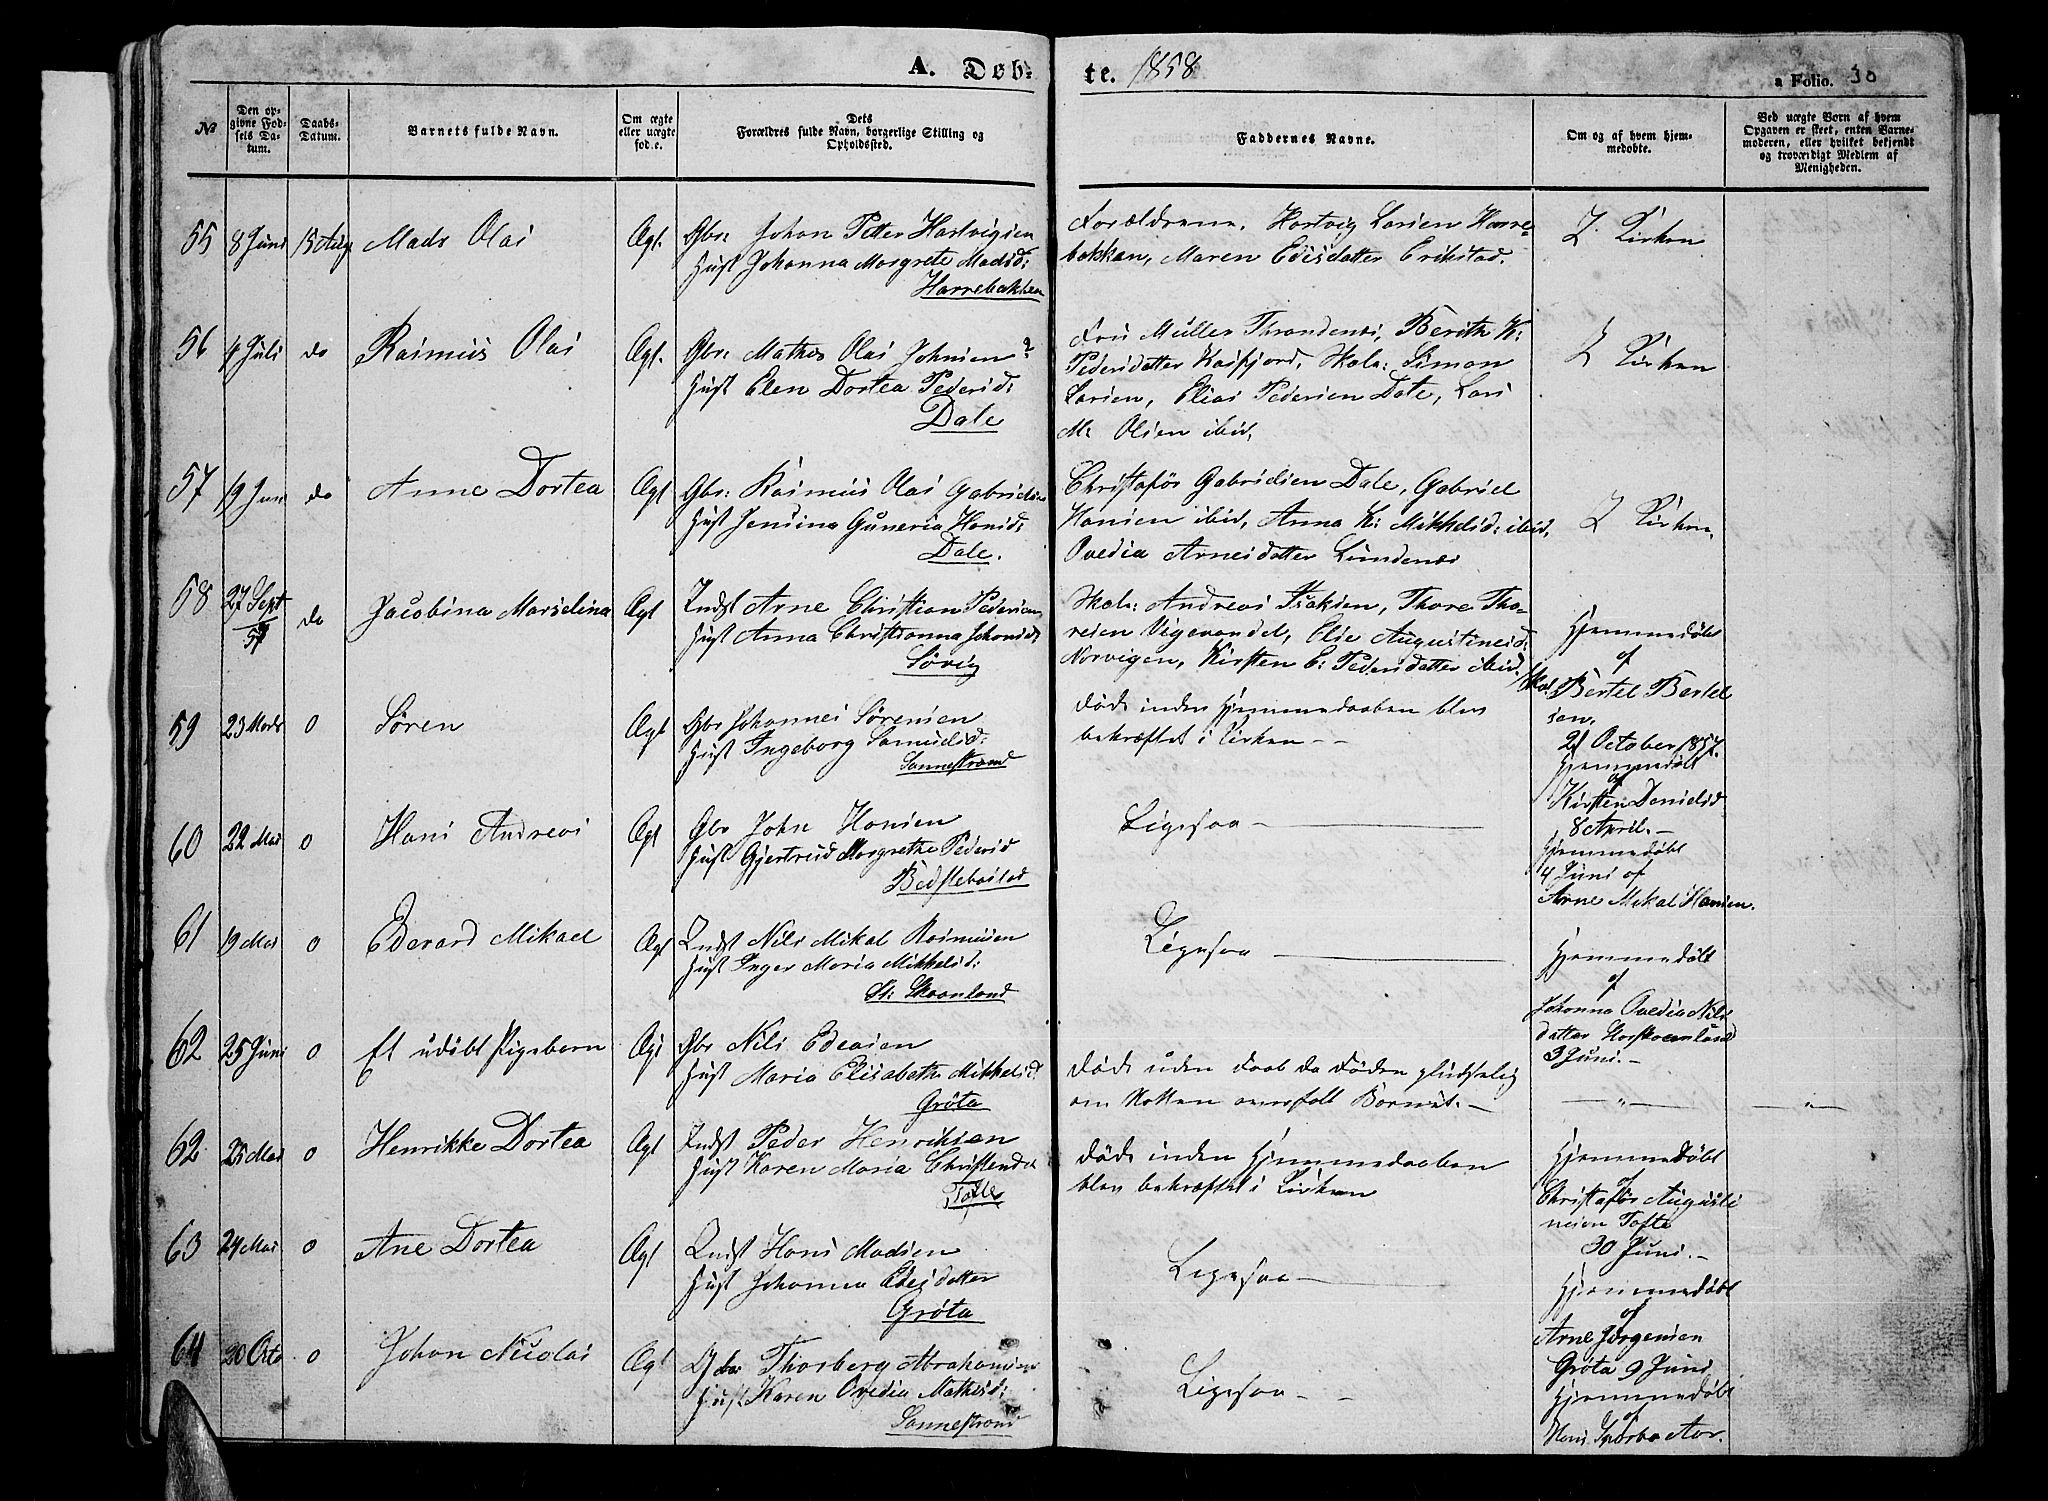 A. Døb-
te. 1858
a Folio. 30
№
Den op-
givne Fød-
sels Da-
tum.
Daabs-
Datum.
Barnets fulde Navn.
Om ægte
eller uægte
fød.e.
Dets
Forældres fulde Navn, borgerlige Stilling og
Opholdssted.
Faddernes Navne.
Om og af hvem hjem-
medøbte.
Ved uægte Børn af hvem
Opgaven er skeet, enten Barne-
moderen, eller hvilket bekjendt
og troværdigt Medlem af
Menigheden.
55 8 Juni 15 Aug Mads Olai Ægt. Gbr: Johan Petter Hartvigsen
Hust Johanna Margrete Madsd:
Harrebakken
Forældrene, Hartvig Larsen Harre-
bakken, Maren Edisdatter Erikstad.
I Kirken
56 4 Juli do Rasmus Olai Ægt. Gbr: Mathis Olai Johnsen
Hust Elen Dortea Pedersd:
Dale
Fru Müller Throndenæs, Berith K:
Pedersdatter Kasfjord, Skol: Simon
Larsen, Elias Pedersen Dale, Lars
M: Olsen ibid,
I Kirken
57 19 Juni do Anne Dortea Ægt Gbr: Rasmus Olai Gabrielsen
Hust Jensina Guneria Hansd:
Dale.
Christafør Gabrielsen Dale, Gabriel
Hansen ibid, Anna K: Mikkelsd: ibid,
Ovedia Arnesdatter Lundenæs
I Kirken.
58 27 Sept 57 do Jacobina Marselina Ægt Indst Arne Christian Pedersen
Hust Anna Christianna Johansd:
Sørvig
Skol: Andreas Isaksen, Thore Tho-
resen Vigevandet, Elie Augustinesd:
Norvigen, Kirsten E: Pedersdatter ibid.
Hjemmedøbt
af
Skol. Bertel Bertel
sen,
21 October 1857.
59 23 Marts o Søren Ægt Gbr Johannes Sørensen
Hust Ingeborg Samuelsd:
Sannestrand
Døde inden Hjemmedaaben blev
bekræftet i Kirken
Hjemmedøbt
af
Kirsten Danielsd
8 April.
60 22 Mai o Hans Andreas Ægt Gbr John Hansen
Hust Gjertrud Margrethe Pedersd
Bedstebostad
Ligesaa
Hjemmedøbt
4 Juni af
Arne Mikal Hansen.
61 19 Mai o Edevard Mikael Ægt Indst Nils Mikal Rasmusen
Hust Inger Maria Mikkelsd:
St: Skaanland
Ligesaa
Hjemmedøbt
af
Johanna Ovedia Nils
datter
3 Juni.
62 25 Juni o Et udøbt Pigebarn Ægt Gbr Nils Edeasen
Hust Maria Elisabeth Mikkelsd
Grøta
Døde uden Daab da Døden pludselig
om Natten overfalt Barnet.
62 23 Mai o Henrikke Dortea Ægt Indst Peder Henriksen
Hust Karen Maria Christensd
Tofte
Døde inden Hjemmedaaben
blev bekræftet i Kirken
Hjemmedøbt
af
Christafør Augusti
nesen Tofte
30 Juni.
63 24 Mai o Ane Dortea Ægt Indst Hans Madsen
Hust Johanna Edisdatter
Grøta
Ligesaa
Hjemmedøbt
af
Arne Jørgensen
Grøta 9 Juni
64 20 Octo o Johan Nicolai Ægt Gbr Thorberg Abrahamsen
Hust Karen Ovedia Mathisd:
Sannestrand
Ligesaa
Hjemmedøbt
af
Hans